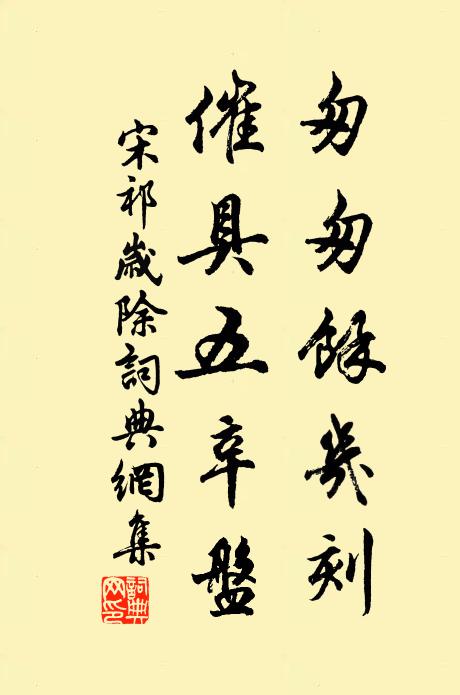 匆匆餘幾刻
催具五辛盤
宋祁歲除詞典網集
詞典网印